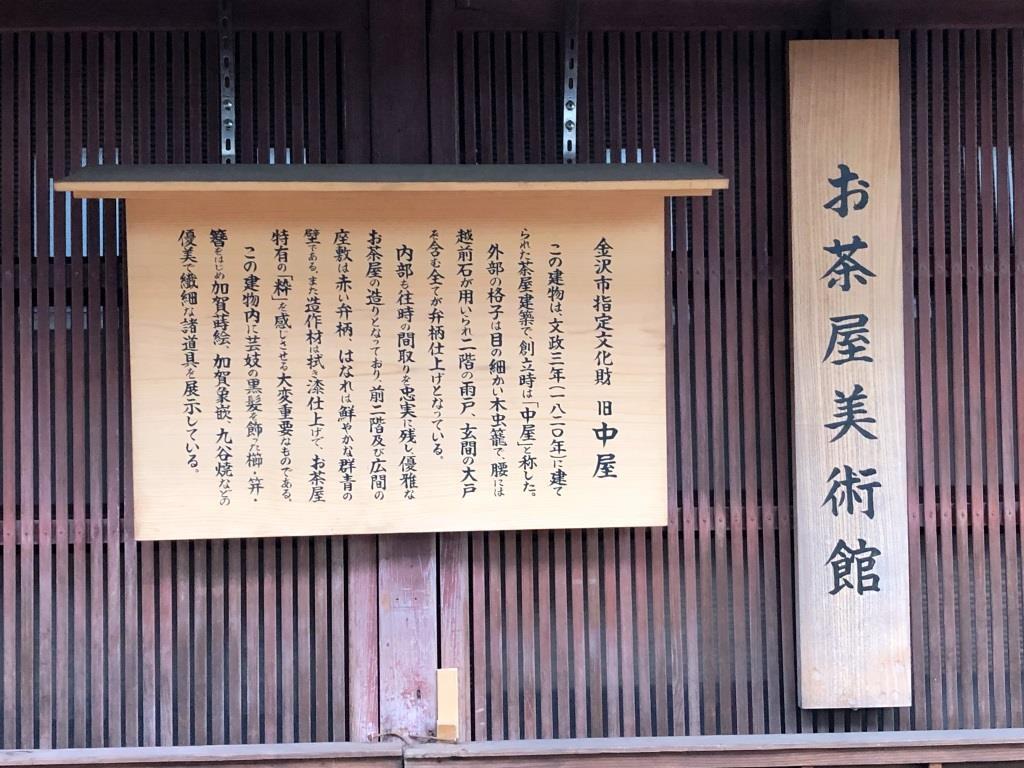 お茶屋美術館
金沢市指定文化財 旧中屋
この建物は、文政三年(一八二〇年)に建て
られた茶屋建築で、創立時は「中屋」と称した。
外部の格子は目の細かい木虫籠で、腰には
越前石が用いられ二階の雨戸、玄間の大戸
を含む全てが弁柄仕上げとなっている。
内部も往時の間取りを忠実に残し、優雅な
お茶屋の造りとなっており、前二階及び広間の
座敷は赤い弁柄、はなれは鮮やかな群青の
壁である。また造作材は拭き漆仕上げで、お茶屋
特有の「粋」を感じさせる大変重要なものである。
この建物内に芸妓の黒髪を飾った櫛・笄・
簪をはじめ加賀蒔絵、加賀象嵌、九谷焼などの
優美で繊細な諸道具を展示している。